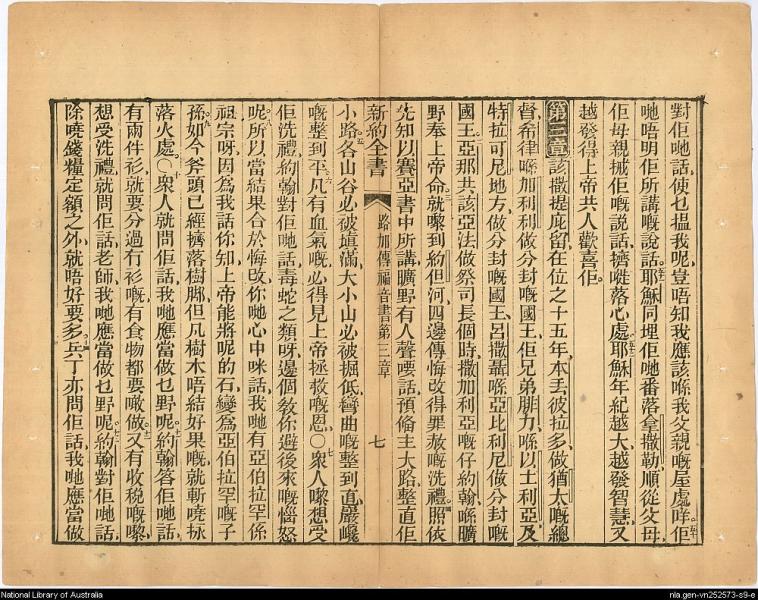 對佢哋話使乜揾我呢豈唔知我應該喺我父親嘅屋處咩佢
哋唔明佢所講嘅說話耶穌同埋佢哋番落拿撒勒順從父母
佢母親摵佢嘅說話擠嘥落心處耶穌年紀越大越發智慧又
越發得上帝共人歡喜佢
第三章該撒提庇留在位之十五年本丟彼拉多做猶太嘅總
督希律喺加利利做分封嘅國王佢兄弟腓力喺以土利亞及
特拉可尼地方做分封嘅國王呂撒聶喺亞比利尼做分封嘅
國王亞那共該亞法做祭司長個時撒加利亞嘅仔約翰喺曠
野奉上帝命就嚟到約但河四邊傳悔改得罪赦嘅洗禮照依
先知以賽亞書中所講曠野有人聲嘜話預俻主大路整直佢
新約全書 路加傳福音書第三章 七
小路各山谷必被塡滿大小山必被掘低彎曲嘅整到直巖巉
嘅整到平凡有血氣嘅必得見上帝拯救嘅恩〇衆人嚟想受
佢洗禮約翰對佢哋話毒蛇之類呀邊個敎你避後來嘅惱怒
呢所以當結果合於悔改你哋心中咪話我哋有亞伯拉罕係
祖宗呀因爲我話你知上帝能將呢的石變爲亞伯拉罕嘅子
孫如今斧頭已經擠落樹脚但凡樹木唔結好果嘅就斬嘵掉
落火處〇衆人就問佢話我哋應當做乜野呢約翰答佢哋話
有兩件衫就要分過冇衫嘅有食物都要噉做又有收税嘅嚟
想受洗禮就問佢話老師我哋應當做乜野呢約翰對佢哋話
除嘵錢糧定額之外就唔好要多兵丁亦問佢話我哋應當做
National Library of Australia
nla.gen-vn252573-s9-e